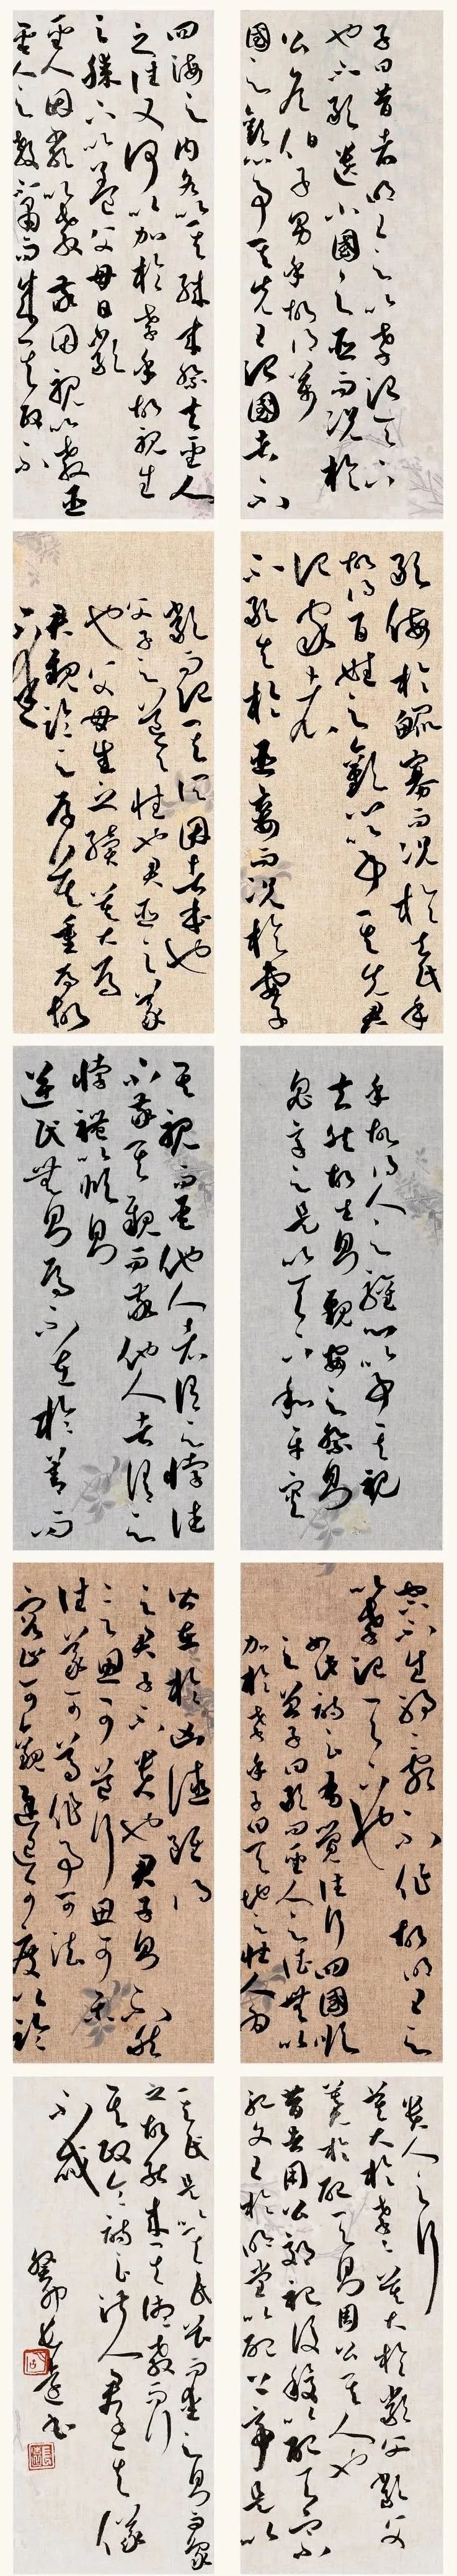 子曰昔者明王之以孝治天下
也不敢遺小國之臣而况於
公侯伯子男乎故得萬
國之歡心以事其先王治國者不
敢侮於鰥寡而况於士民乎
故得百姓之歡心以事其先君
治家者
不敢失於臣妾而况於妻子
乎故得人之歡心以事其親
夫然故生則親安之祭則
鬼享之是以天下和平灾
害不生禍亂不作故明王之
以孝治天下也
如此詩云有覺德行四國順
之曾子曰敢問聖人之德無以
加於孝乎子曰天地之性人為
貴人之行
莫大於孝孝莫大於嚴父嚴父
莫大於配天則周公其人也
昔者周公郊祀后稷以配天宗
祀文王於明堂以配上帝是以
四海之内各以其職来祭夫聖人
之德又何以加於孝乎故親生
之膝下以養父母日嚴
聖人因嚴以教敬因親以教愛
聖人之教不肅而成其政不
嚴而治其所因者本也
父子之道天性也君臣之義
也父母生之續莫大焉
君親臨之厚莫重焉故
不愛
其親而愛他人者謂之悖德
不敬其親而敬他人者謂之
悖禮以順則
逆民無則焉不在於善而
皆在於凶德雖得
之君子不貴也君子則不然
言思可道行思可樂
德義可尊作事可法
容止可觀進退可度以臨
其民是以其民畏而愛之則而象
之故能成其德教而行
其政令詩云淑人君子其儀
不忒
癸卯